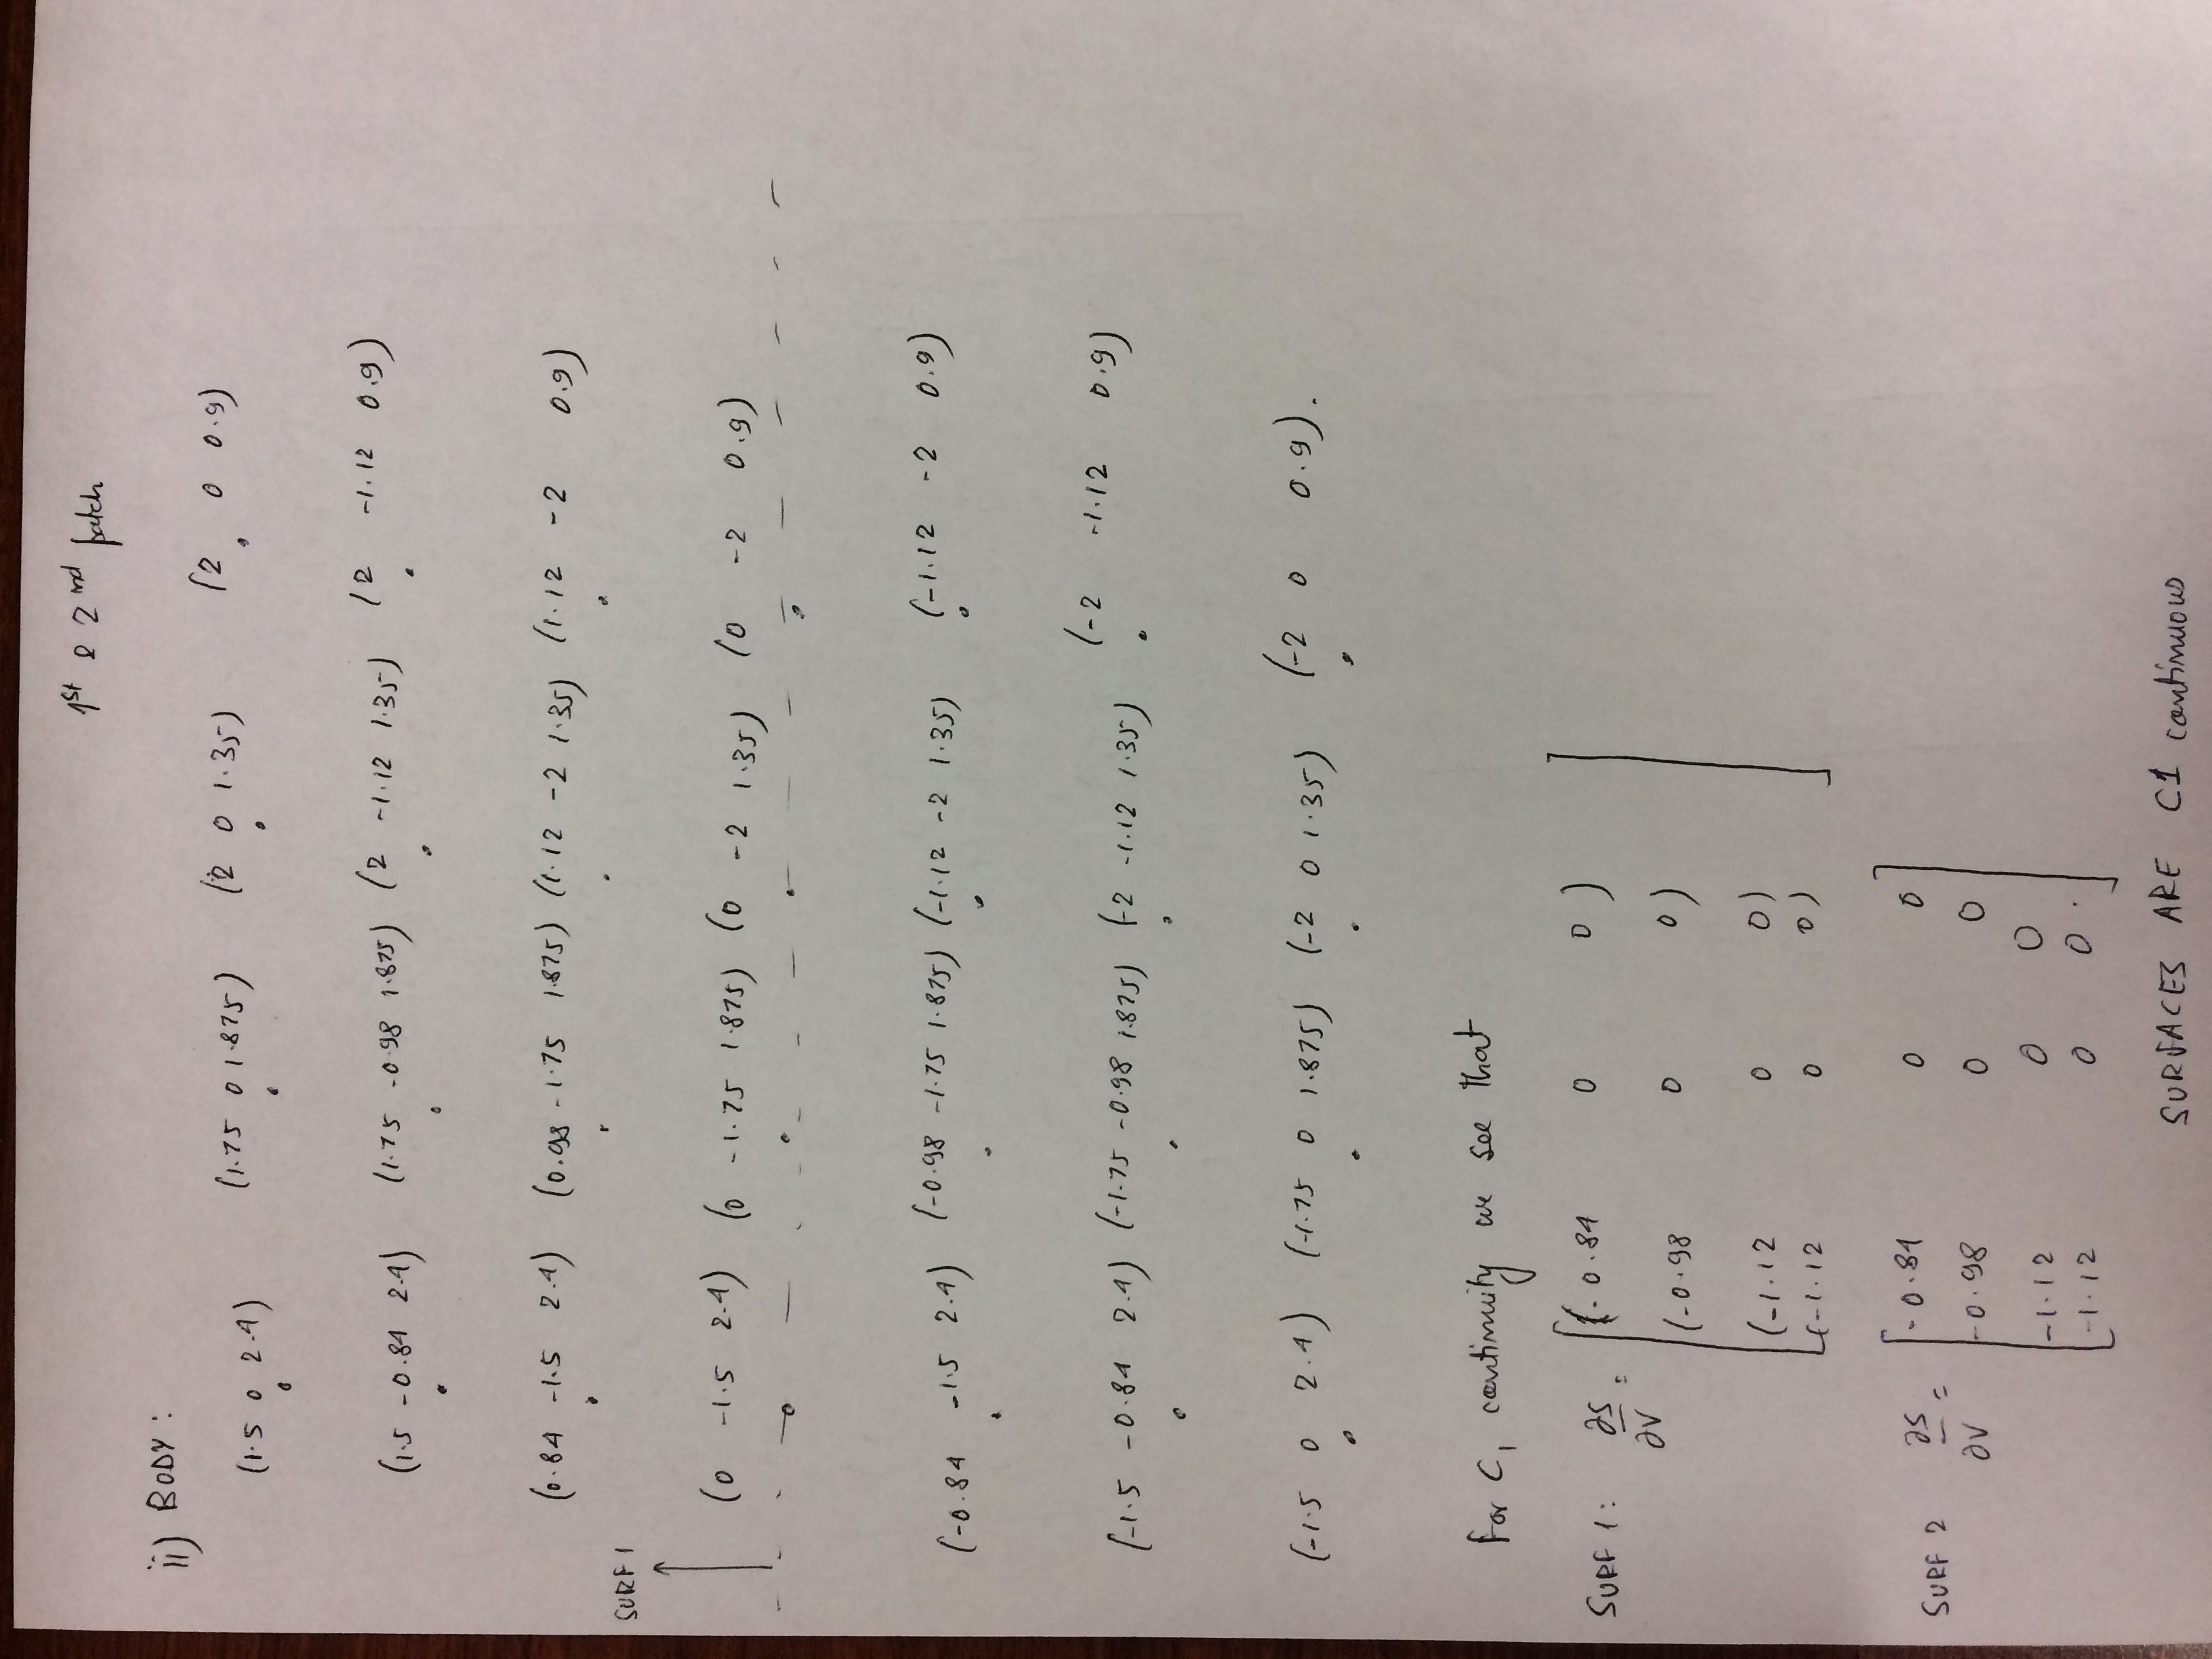 1st & 2nd patch
ii) BODY:
(1.5 0 2.4) (1.75 0 1.875) (2 0 1.35) (2 0 0.9)
(1.5 -0.84 2.4) (1.75 -0.98 1.875) (2 -1.12 1.35) (2 -1.12 0.9)
(0.84 -1.5 2.4) (0.98 -1.75 1.875) (1.12 -2 1.35) (1.12 -2 0.9)
SURF 1
(0 -1.5 2.4) (0 -1.75 1.875) (0 -2 1.35) (0 -2 0.9)
(-0.84 -1.5 2.4) (-0.98 -1.75 1.875) (-1.12 -2 1.35) (-1.12 -2 0.9)
(-1.5 -0.84 2.4) (-1.75 -0.98 1.875) (-2 -1.12 1.35) (-2 -1.12 0.9)
(-1.5 0 2.4) (-1.75 0 1.875) (-2 0 1.35) (-2 0 0.9).
For C1 continuity we see that
SURF 1: ∂S/∂V = [(-0.84 0 0)
(-0.98 0 0)
(-1.12 0 0)
(-1.12 0 0)]
SURF 2 ∂S/∂V = [-0.84 0 0
-0.98 0 0
-1.12 0 0
-1.12 0 0.]
SURFACES ARE C1 continuous